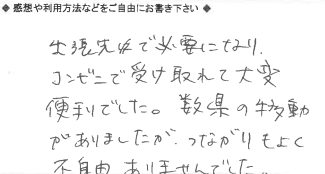 ◆ 感想や利用方法などをご自由にお書き下さい ◆
出張先で必要になり、
コンビニで受け取れて大変
便利でした。数県の移動
がありましたが、つながりもよく
不自由ありませんでした。